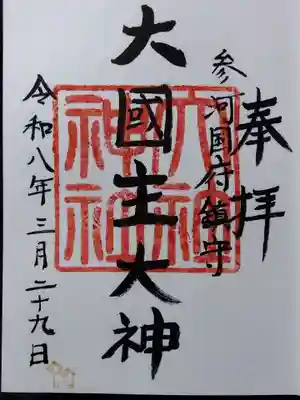 奉拝
参河国府鎮守
大國主大神
令和八年三月二十九日